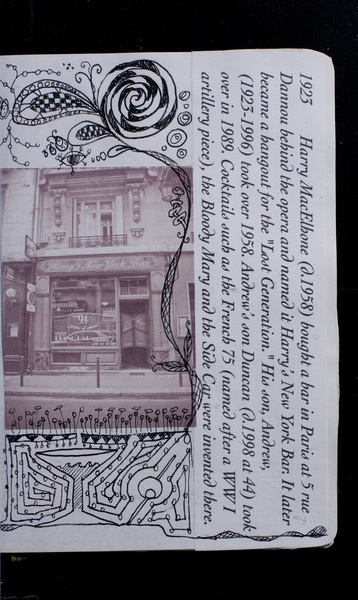 1923 Harry MacElhone (d.1958) bought a bar in Paris at 5 rue
Dannou behind the opera and named it Harry's New York Bar. It later
became a hangout for the "Lost Generation." His son, Andrew,
(1923-1996) took over 1958. Andrew's son Duncan (d.1998 at 44) took
over in 1989. Cocktails such as the French 75 (named after a WW I
artillery piece), the Bloody Mary and the Side Car were invented there.